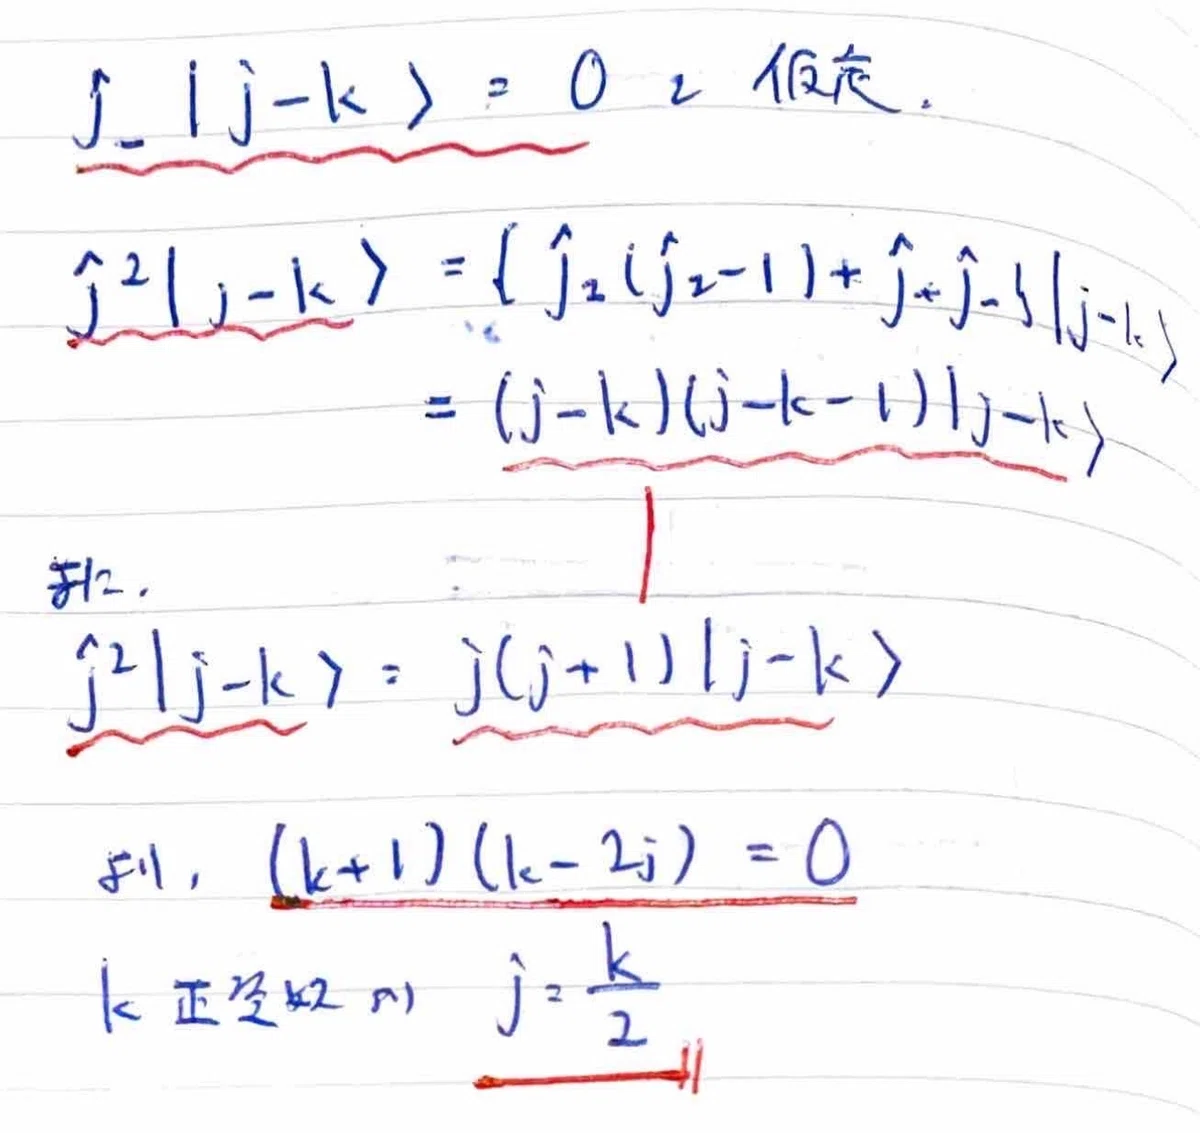 ĵ₋|j-k⟩ = 0 と 仮定.
ĵ²|j-k⟩ = { ĵz(ĵz-1) + ĵ₊ĵ₋}|j-k⟩
= (j-k)(j-k-1)|j-k⟩
また.
ĵ²|j-k⟩ = j(j+1)|j-k⟩
より, (k+1)(k-2j) = 0
k 正整数 より j = k/2